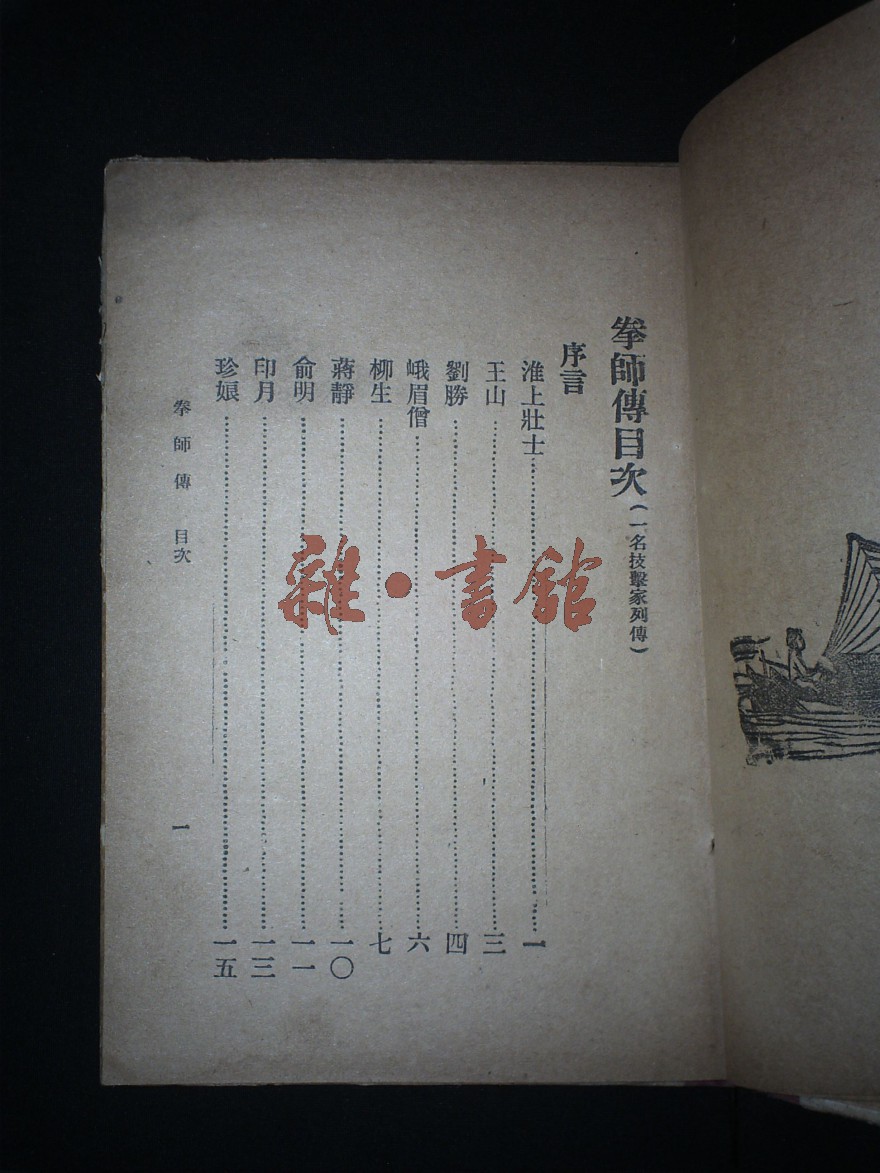 拳師傳目次(一名技擊家列傳)
序言
淮上壯士……一
王山……三
劉勝……四
峨眉僧……六
柳生……七
蔣靜……一〇
俞明……一一
印月……一三
珍娘……一五
拳師傳 目次 一
雜·書館